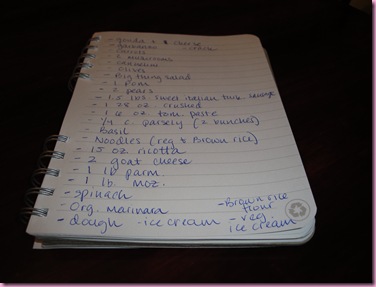 - gouda + cheese
- carrots
- 2 mushrooms
- olives
- Big thing salad
- 1 Pom.
- 2 pears
- 1.5 lbs sweet italian turk. sausage
- 1 28 oz. crushed
- 1 6 oz tom. paste
- 1/4 c. parsely (2 bunches)
- Basil
- Noodles (reg + Brown rice)
- 15 oz. ricotta
- 2 goat cheese
- 1 lb parm.
- 1 lb. moz.
- spinach
- Org. Marinara
- dough - ice cream
- Brown rice
flour
- reg.
ice cream